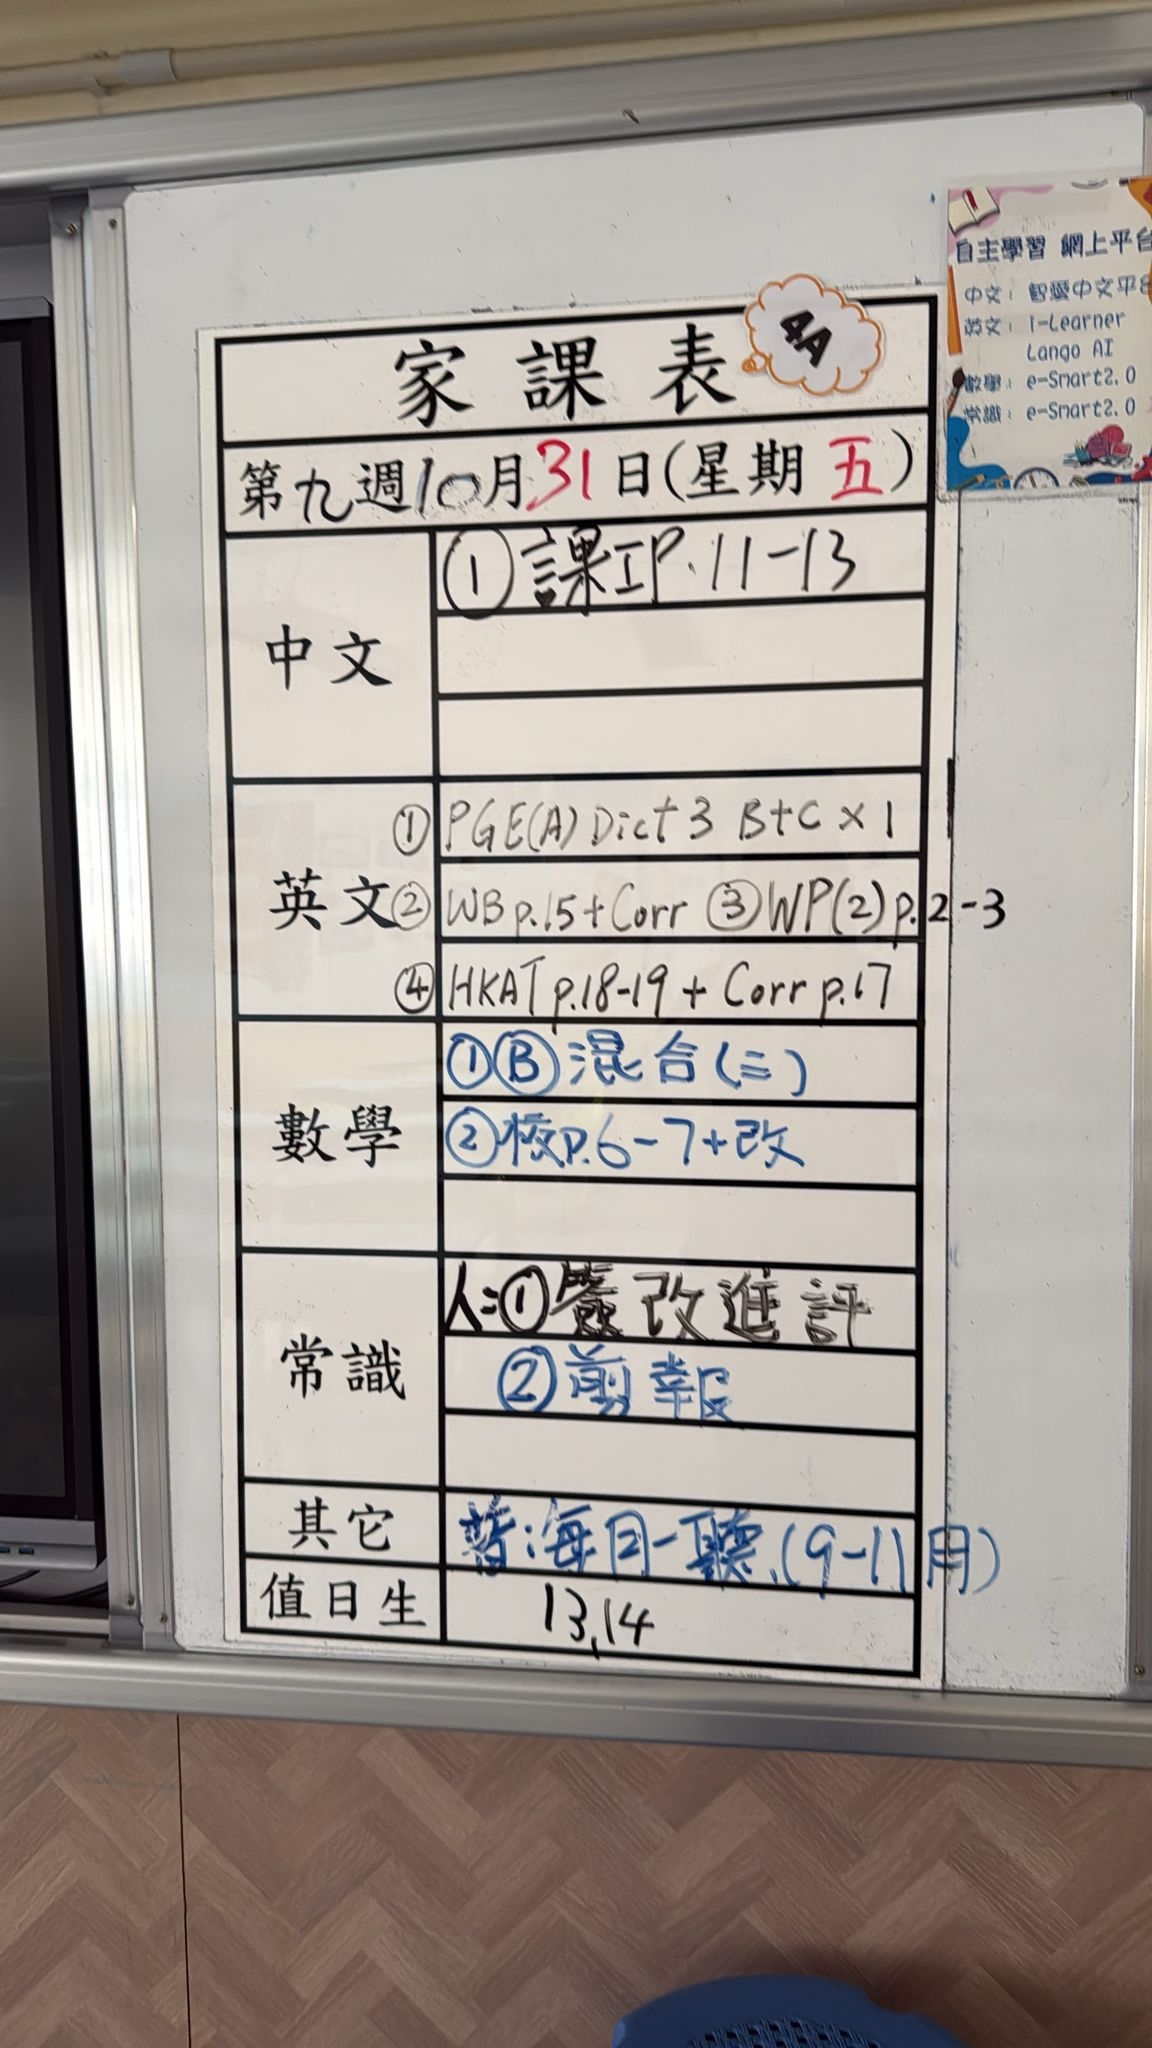 家課表
4A
第九週10月31日(星期五)
中文
①課工P.11-13
英文
①PGE(A) Dict 3 B+C x 1
②WB p.15 + Corr ③WP(2) p.2-3
④HKAT p.18-19 + Corr p.17
數學
①Ⓑ混合(三)
②校P.6-7+改
常識
人:①簽改進評
②剪報
其它
普:每月一聽(9-11月)
值日生
13,14
自主學習 網上平台
中文: 智愛中文平台
英文: i-Learner
Lango AI
數學: e-Smart2.0
常識: e-Smart2.0